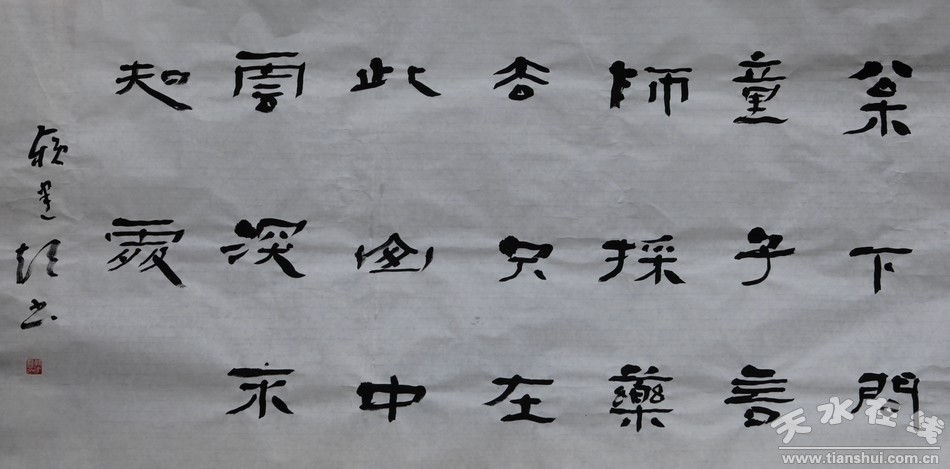 枀下問
童子言
師採藥
去只在
此山中
雲深不
知處
天水在线
www.tianshui.com.cn